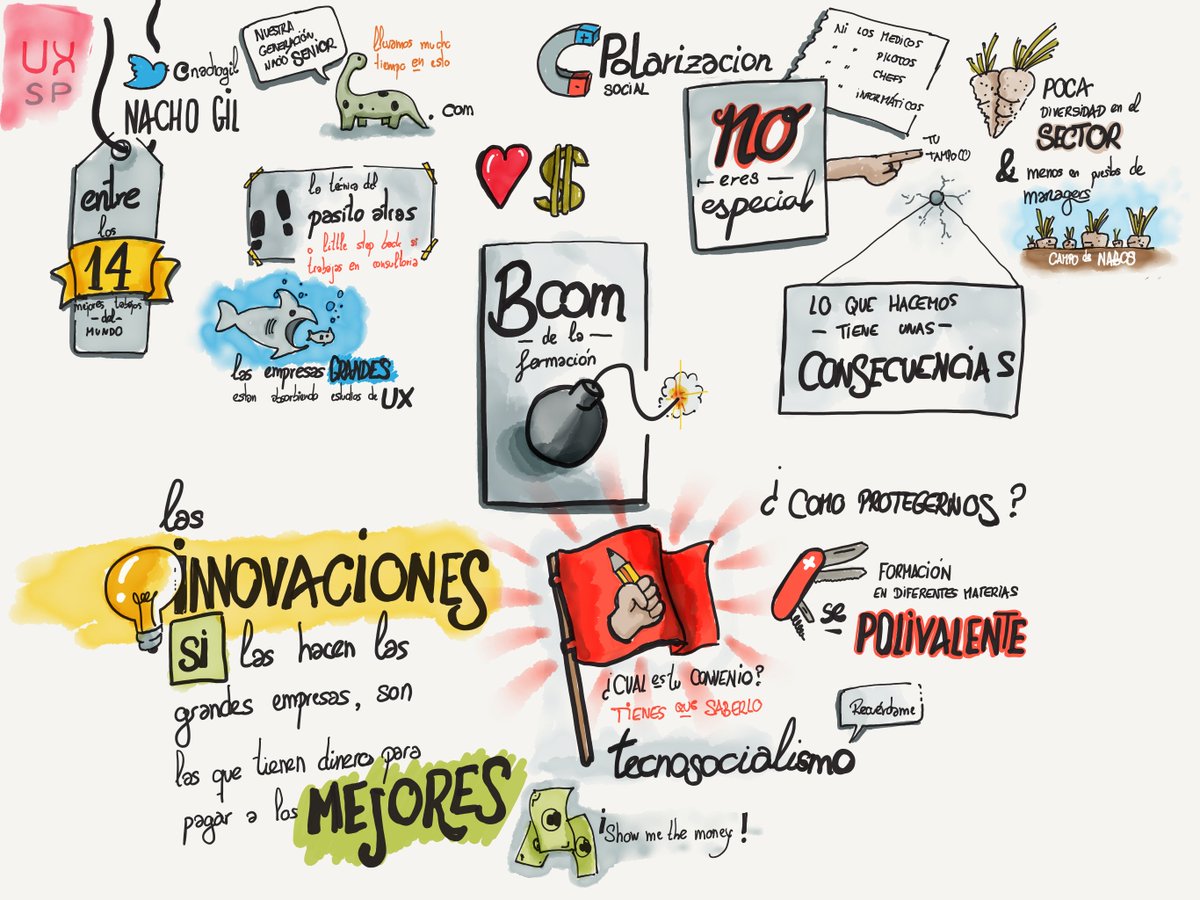 UX
SP
@nachogil
NACHO GIL
NUESTRA
GENERACIÓN
NACIÓ SENIOR
llevamos mucho
tiempo en esto
.com
entre
los
14
mejores trabajos
del
MUNDO
la técnica del
pasito atras
o little step back si
trabajas en consultoria
las empresas GRANDES
estan absorbiendo estudios de UX
Polarizacion
SOCIAL
$
NO
eres
especial
Ni LOS MEDICOS
" " PILOTOS
" " CHEFS
" " iNFORMÁTICOS
TU
TAMPOCO
POCA
DIVERSIDAD en el
SECTOR
& menos en puestos de
managers
CAMPO de NABOS
Boom
de la
formación
LO QUE HACEMOS
TIENE UNAS
CONSECUENCIAS
las
iNNOVACIONES
Si las hacen las
grandes empresas, son
las que tienen dinero para
pagar a los MEJORES
¿CUAL es tu CONVENIO?
TIENES QUE SABERLO
tecnosocialismo
Recuérdame
¡Show me the money!
¿COMO PROTEGERNOS?
FORMACION
EN DIFERENTES MATERIAS
se POLIVALENTE